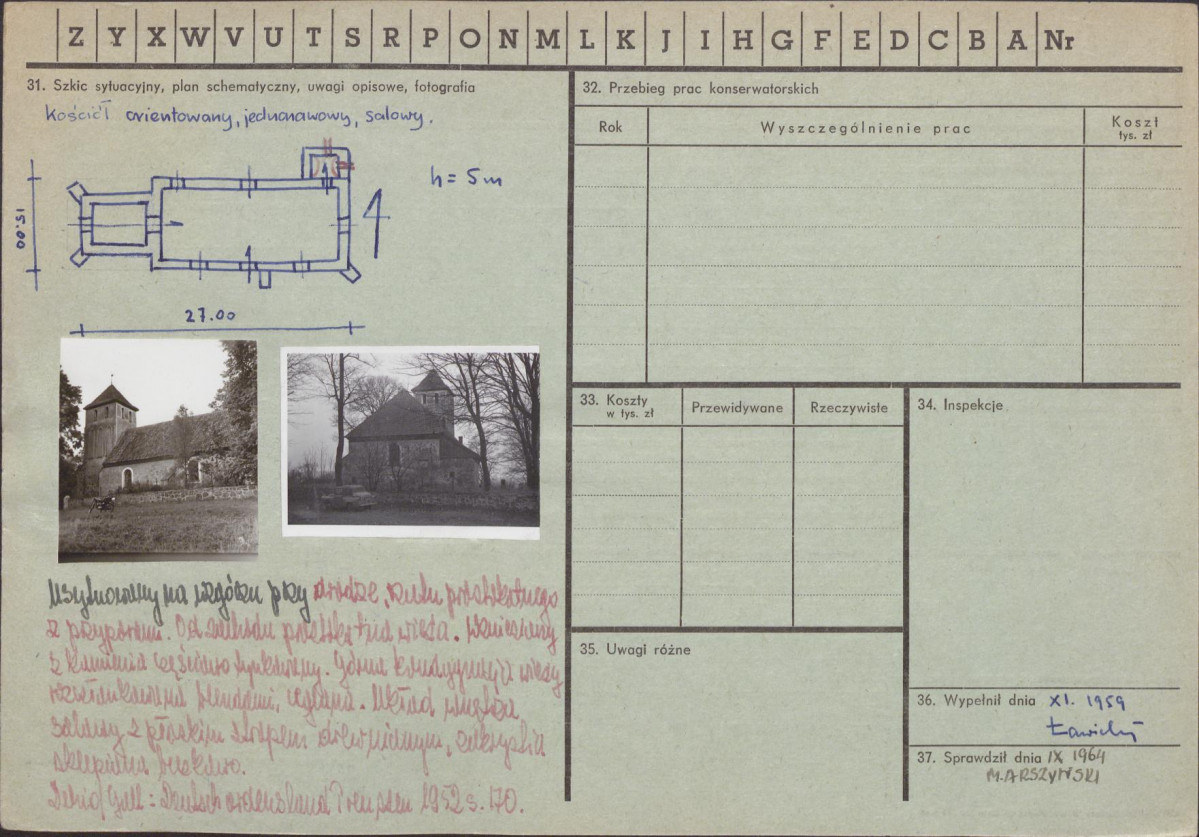 Z Y X W V U T S R P O N M L K J I H G F E D C B A Nr
31. Szkic sytuacyjny, plan schematyczny, uwagi opisowe, fotografia
Kościół orientowany, jednonawowy, salowy.
h = 5 m
15.00
27.00
Usytuowany na wzgórzu przy drodze, rzutu prostokątnego
z przyporami. Od zachodu prostokątna wieża. Wzniesiony
z kamienia częściowo tynkowany. Górna kondygnacja wieży
rozczłonkowana blendami, ceglana. Układ wnętrza
salowy z płaskim stropem drewnianym, zakrystia
sklepiona beczkowo.
Dehio/Gall: Deutschordensland Preussen 1952 s. 170.
32. Przebieg prac konserwatorskich
Rok
Wyszczególnienie prac
Koszt
tys. zł
33. Koszty
w tys. zł
Przewidywane
Rzeczywiste
34. Inspekcje
35. Uwagi różne
36. Wypełnił dnia XI. 1959
37. Sprawdził dnia IX 1964
M. ARSZYŃSKI